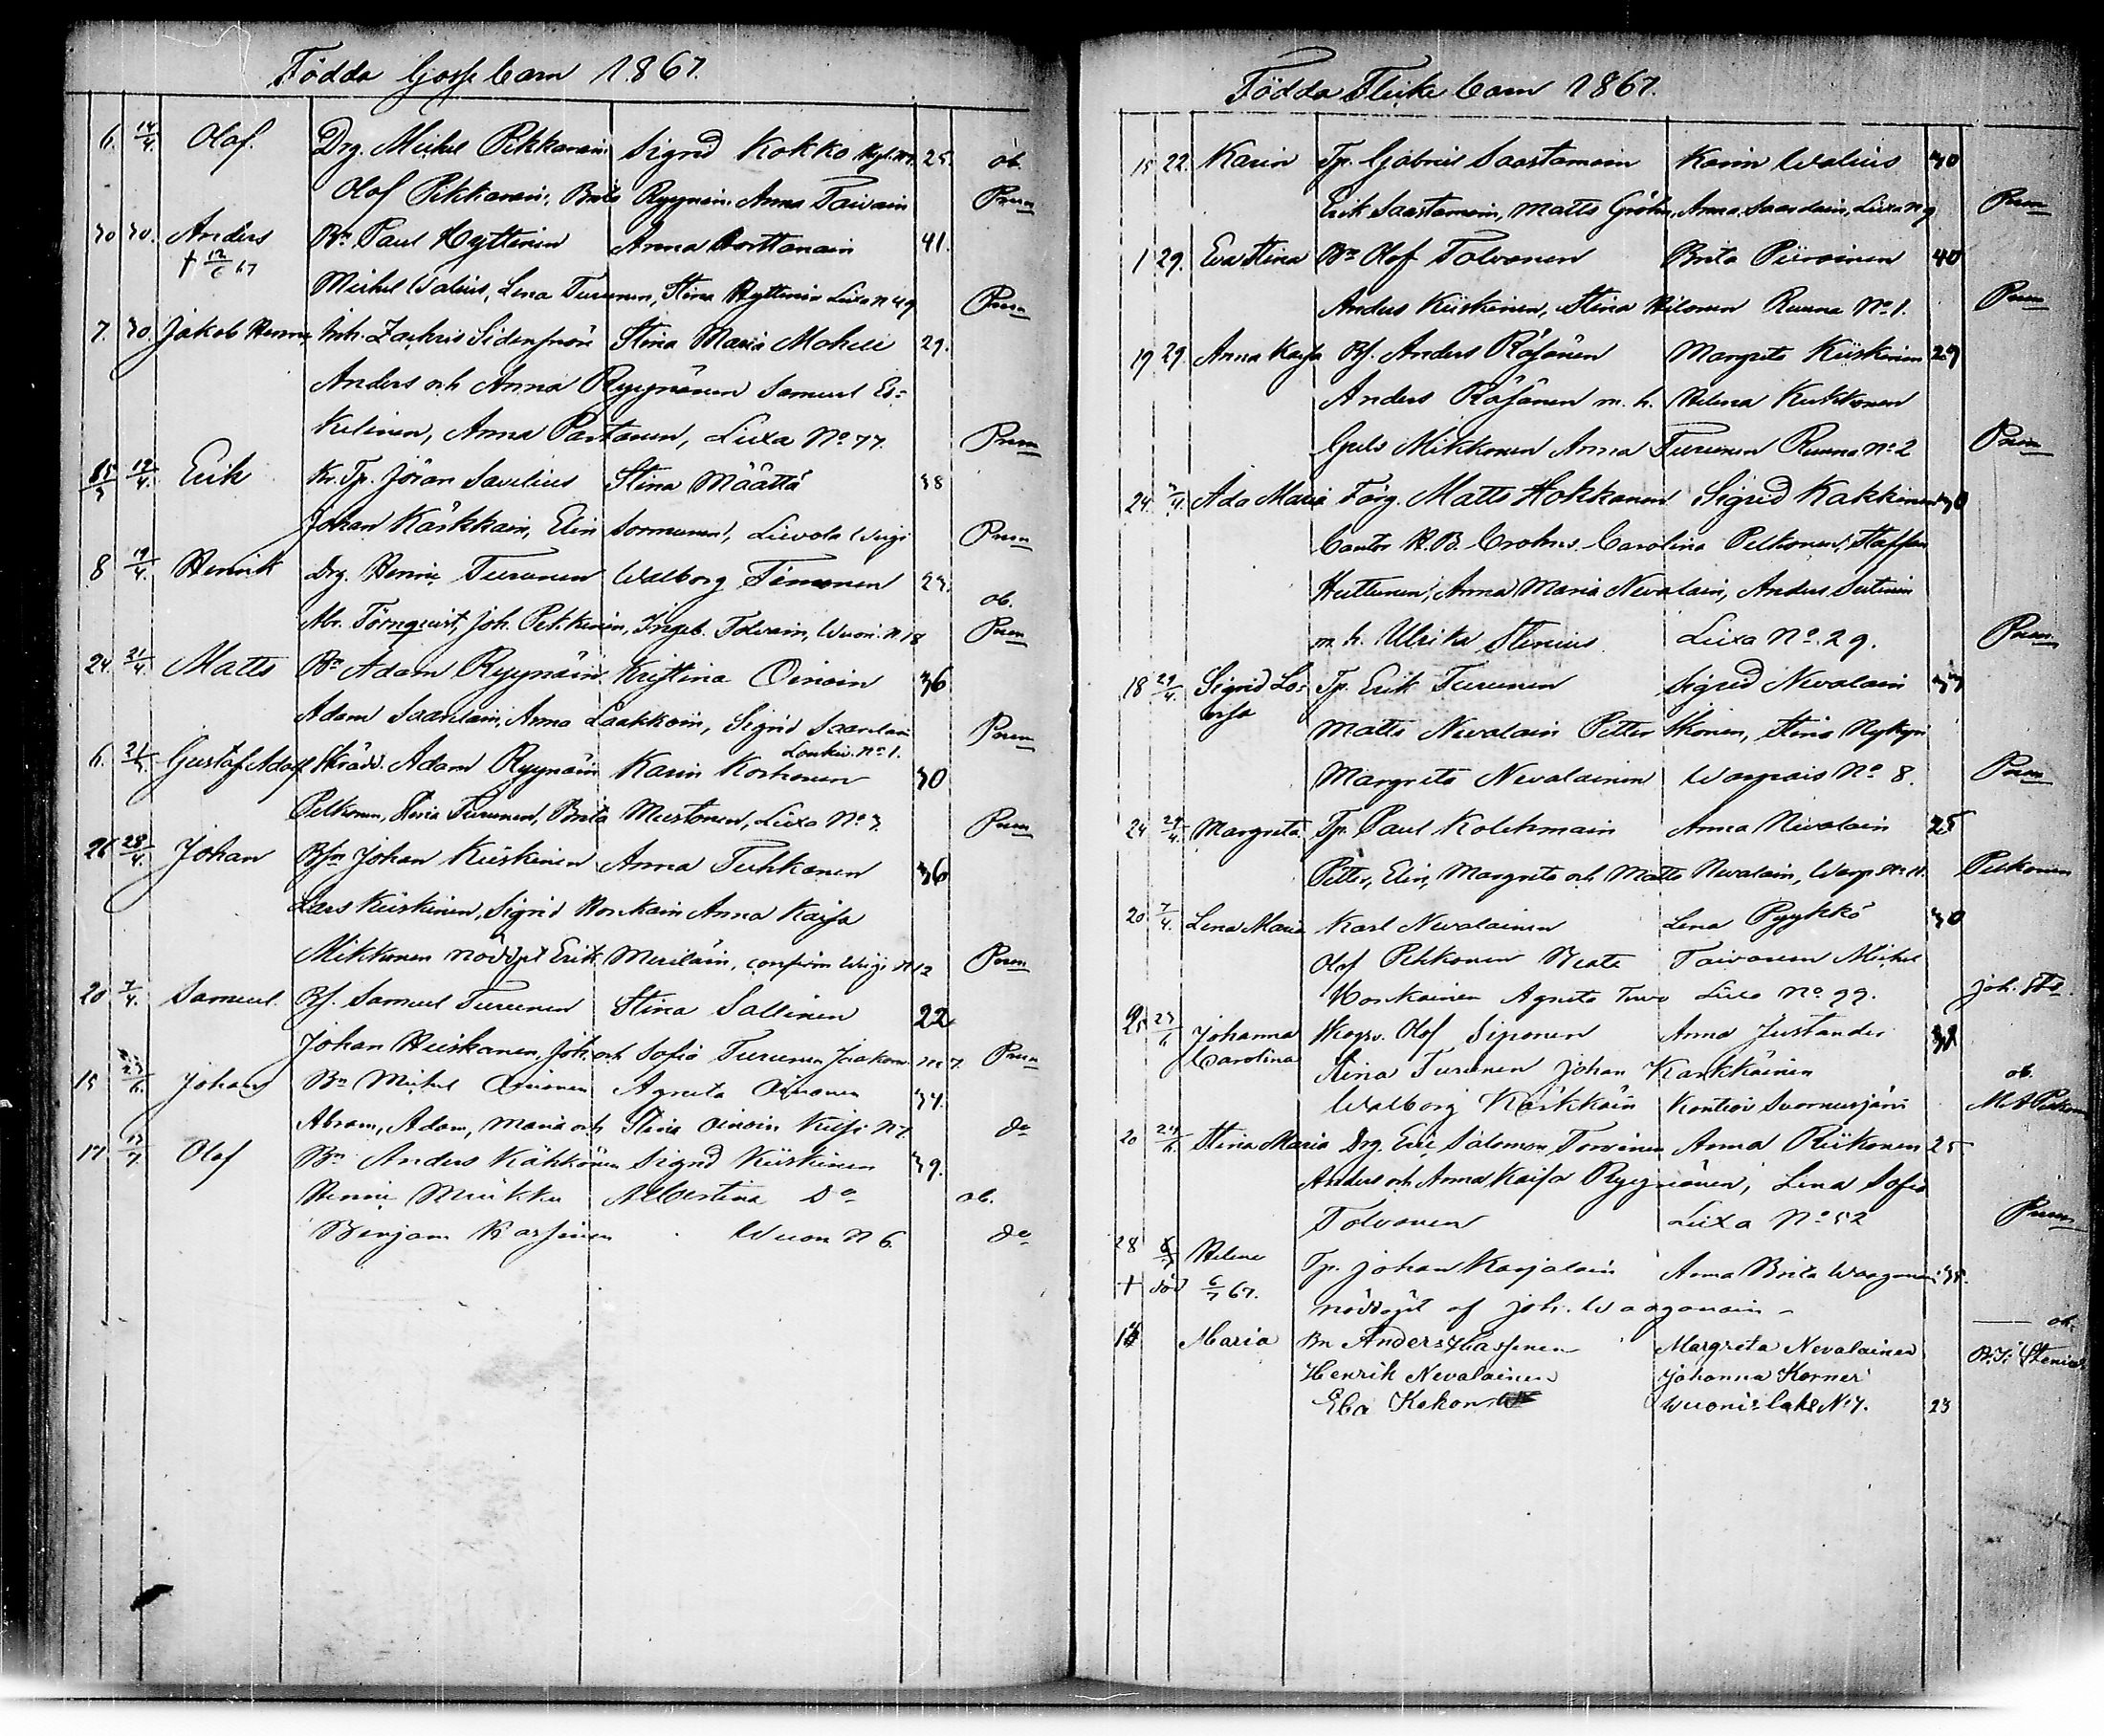 Födda Gosse barn 1867.
6. 14/4. Olof. Drg. Michel Pikkarain Sigrid Kokko 25. ob.
Olof Pikkarain, Brita Ryynäin Anna Taivain Prum
30 30. Anders Bn Paul Hyttinen Anna Porttanain 41.
† 12/6 67
Michel Walius, Lena Turunen, Stina Hyttinen Lixa N 49 Prum
7. 30. Jakob Henric Inh. Zachris Sidensnör Stina Maria Moheli 29.
Anders och Anna Ryynänen Samuel Es-
kelinen, Anna Partanen, Lixa No 77. Prum
15/3 14/4. Erik Kr. Tp. Jöran Savelius Stina Määttä 38
Johan Kärkkäin, Elin Sormunen, Lievola Wiigi Prum
8 19/4. Henrik Drg. Henric Turunen Walborg Timonen 23. ob.
Abr. Törnqvist, Joh. Pekkinen, Ingeb. Tolvain, Wuon. N 18 Prum
24. 21/4. Matts Bn Adam Ryynäin Kristina Oinoin 36
Adam Saarelain, Anna Laakkoin, Sigrid Saarelain Prum
Lonkiv. No 1.
6. 21/4. Gustaf Adolf Skrädd. Adam Ryynäin Karin Korhonen 30
Pelkonen, Stina Turunen, Brita Mustonen, Lixa No 3. Prum
26 28/4. Johan Bsn Johan Kiiskinen Anna Tuhkanen 36
Lars Kiiskinen, Sigrid Honkain Anna Kaisa
Mikkonen nöddpt Erik Meriläin, confirm Wiigi N 12 Prum
20 7/4. Samuel. Bs. Samuel Turunen Stina Sallinen 22
Johan Heiskanen, Joh. och Sofia Turunen Jaakon. N 7. Prum
15 23/6. Johan Bn Michel Oinonen Agneta Oinonen 34.
Abram, Adam, Maria och Stina Oinoin Kuisi N 7. do
17 13/7. Olof Bn Anders Kähkönen Sigrid Kiiskinen 39.
Henric Mükku Albertina Do ob.
Benjam Karsinen Wuon N 6. do
Födda Flicke barn 1867.
15 22. Karin Tp. Gabriel Saastamoin Karin Walius 30
Erik Saastamoin, Matts Gröhn, Anna Saarelain, Lixa N 9 Prum
1 29. Eva Stina Bn Olof Tolvonen Brita Piiroinen 40
Anders Kiiskinen, Stina Hilonen Ruuna No 1. Prum
19 29. Anna Kaisa Bs. Anders Räsänen Margreta Kiiskinen 29
Anders Räsänen m. h. Helena Kukkonen
Gabr. Mikkonen Anna Turunen Ruuna No 2 Prum
24 7/4. Ada Maria Färg. Matts Hokkanen Sigrid Kakkinen 30
Cantor H. B. Crohns. Carolina Pelkonen, Staffan
Huttunen, Anna Maria Nevalain, Anders Sutinen
m. h. Ulrika Stenius Lixa No. 29. Prum
18 29/4. Sigrid Lo- Tp. Erik Turunen Sigrid Nevalain 33
visa
Matts Nevalain Petter Ikonen, Stina Nykyri
Margreta Nevalainen Warpais No 8. Prum
24 29/4. Margreta Tp. Paul Kolehmain Anna Nevalain 25
Petter, Elin, Margreta och Matts Nevalain, Warp. Pelkonen
20 7/4. Lena Maria Karl Nevalainen Lena Pyykkö 30
Olof Pehkonen Beata Taivanen Michel
Honkainen Agneta Turu Lixa No 99. Joh. Sts.
25 23/6 Johanna Skogsv. Olof Siponen Anna Justander 31
Carolina Stina Turunen Johan Karkkäinen ob.
Walborg Kärkkäin Kontiov Suornusjärvi
20 24/6. Stina Maria Drg. Eric Salomon Torvinen Anna Riikonen 25
Anders och Anna Kaisa Ryynänen, Lena Sofia
Tolvonen Lixa No 52 Prum
28 Helena Tp. Johan Karjalain Anna Brita Waaganen 35.
† död 6/7 67. nöddöpt af Joh. Waaganain - ob.
16 Maria Bn Anders Hassinen Margreta Nevalainen
Henrik Nevalainen Johanna Korner
Eba Kokon Wuonislaks N 7. 23